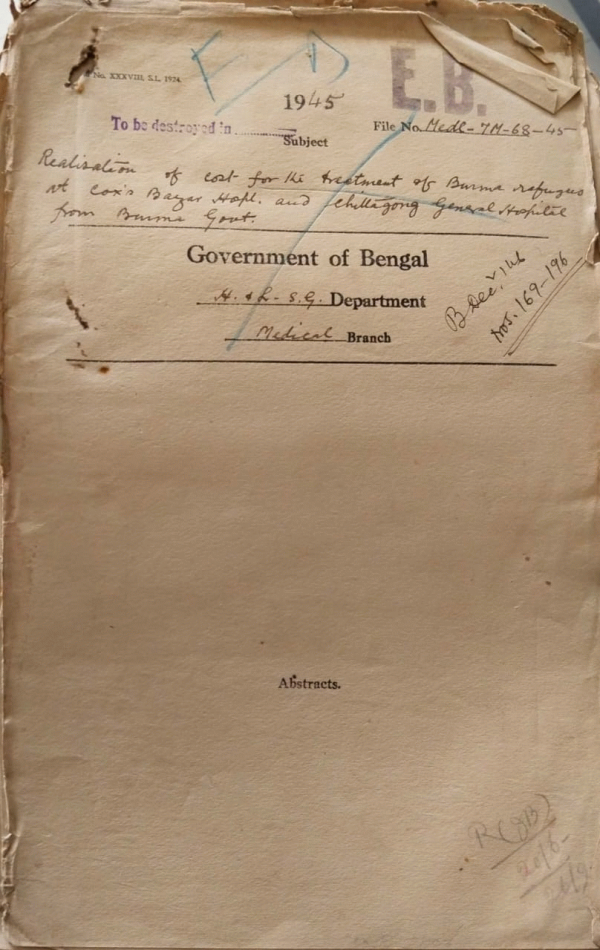 No. XXXVIII, S.L. 1924.
E.B.
1945
To be destroyed in
File No. Medl-7M-68-45
Subject
Realisation of cost for the treatment of Burma refugees
at Cox's Bazar Hospl. and Chittagong General Hospital
from Burma Govt.
Government of Bengal
H. & L-S.G. Department
Medical Branch
B Dec. '46
Nos. 169-196
Abstracts.